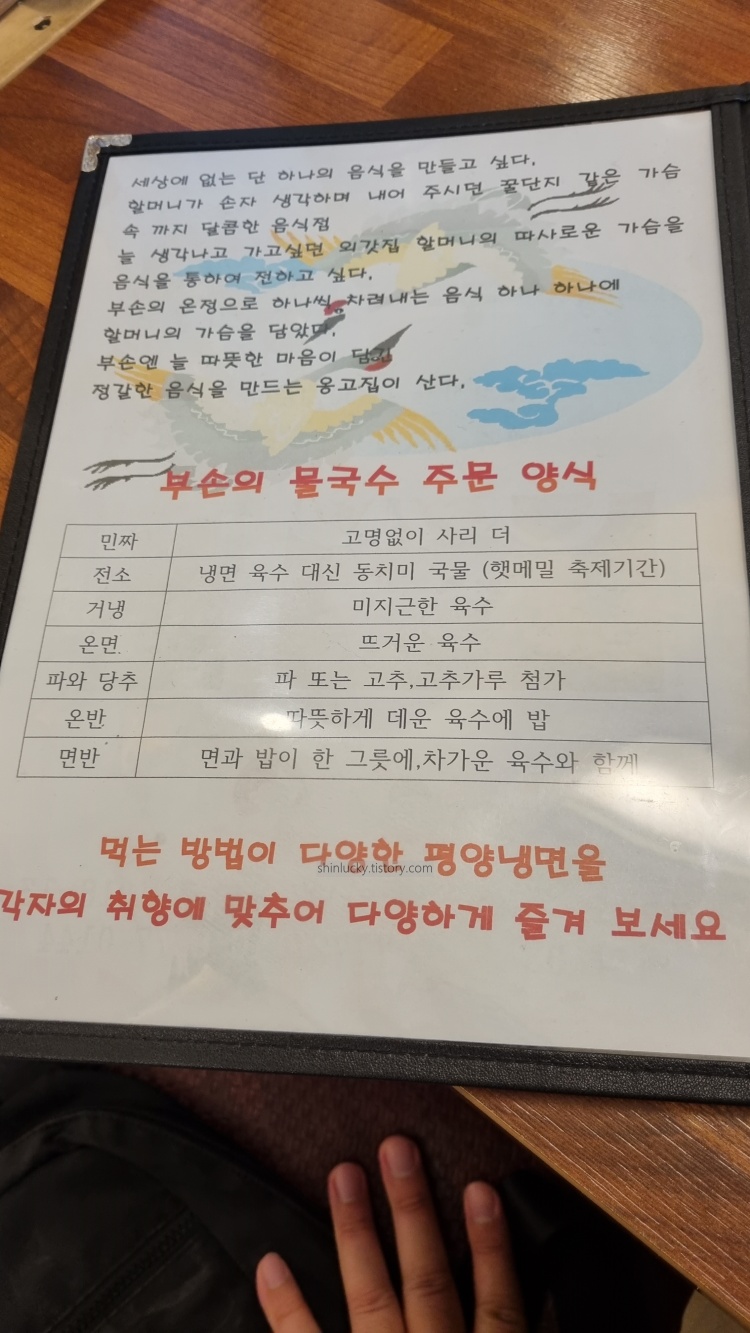 세상에 없는 단 하나의 음식을 만들고 싶다.
할머니가 손자 생각하며 내어 주시던 꿀단지 같은 가슴
속 까지 달콤한 음식점
늘 생각나고 가고싶던 외갓집 할머니의 따사로운 가슴을
음식을 통하여 전하고 싶다.
부손의 온정으로 하나씩 차려내는 음식 하나 하나에
할머니의 가슴을 담았다.
부손엔 늘 따뜻한 마음이 담긴
정갈한 음식을 만드는 옹고집이 산다.
부손의 물국수 주문 양식
민짜 고명없이 사리 더
전소 냉면 육수 대신 동치미 국물 (햇메밀 축제기간)
거냉 미지근한 육수
온면. 뜨거운 육수
파와 당추 파 또는 고추,고추가루 첨가
온반 따뜻하게 데운 육수에 밥
면반 면과 밥이 한 그릇에,차가운 육수와 함께
먹는 방법이 다양한 평양냉면을
shinlucky.tistory.com
각자의 취향에 맞추어 다양하게 즐겨 보세요